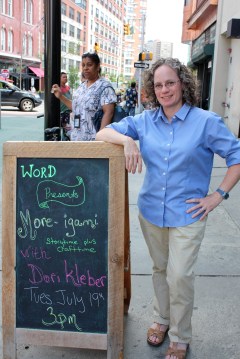 WORD
Presents
More-igami
Storytime plus
crafttime
with
Dori Kleber
Tues July 19th
3pm